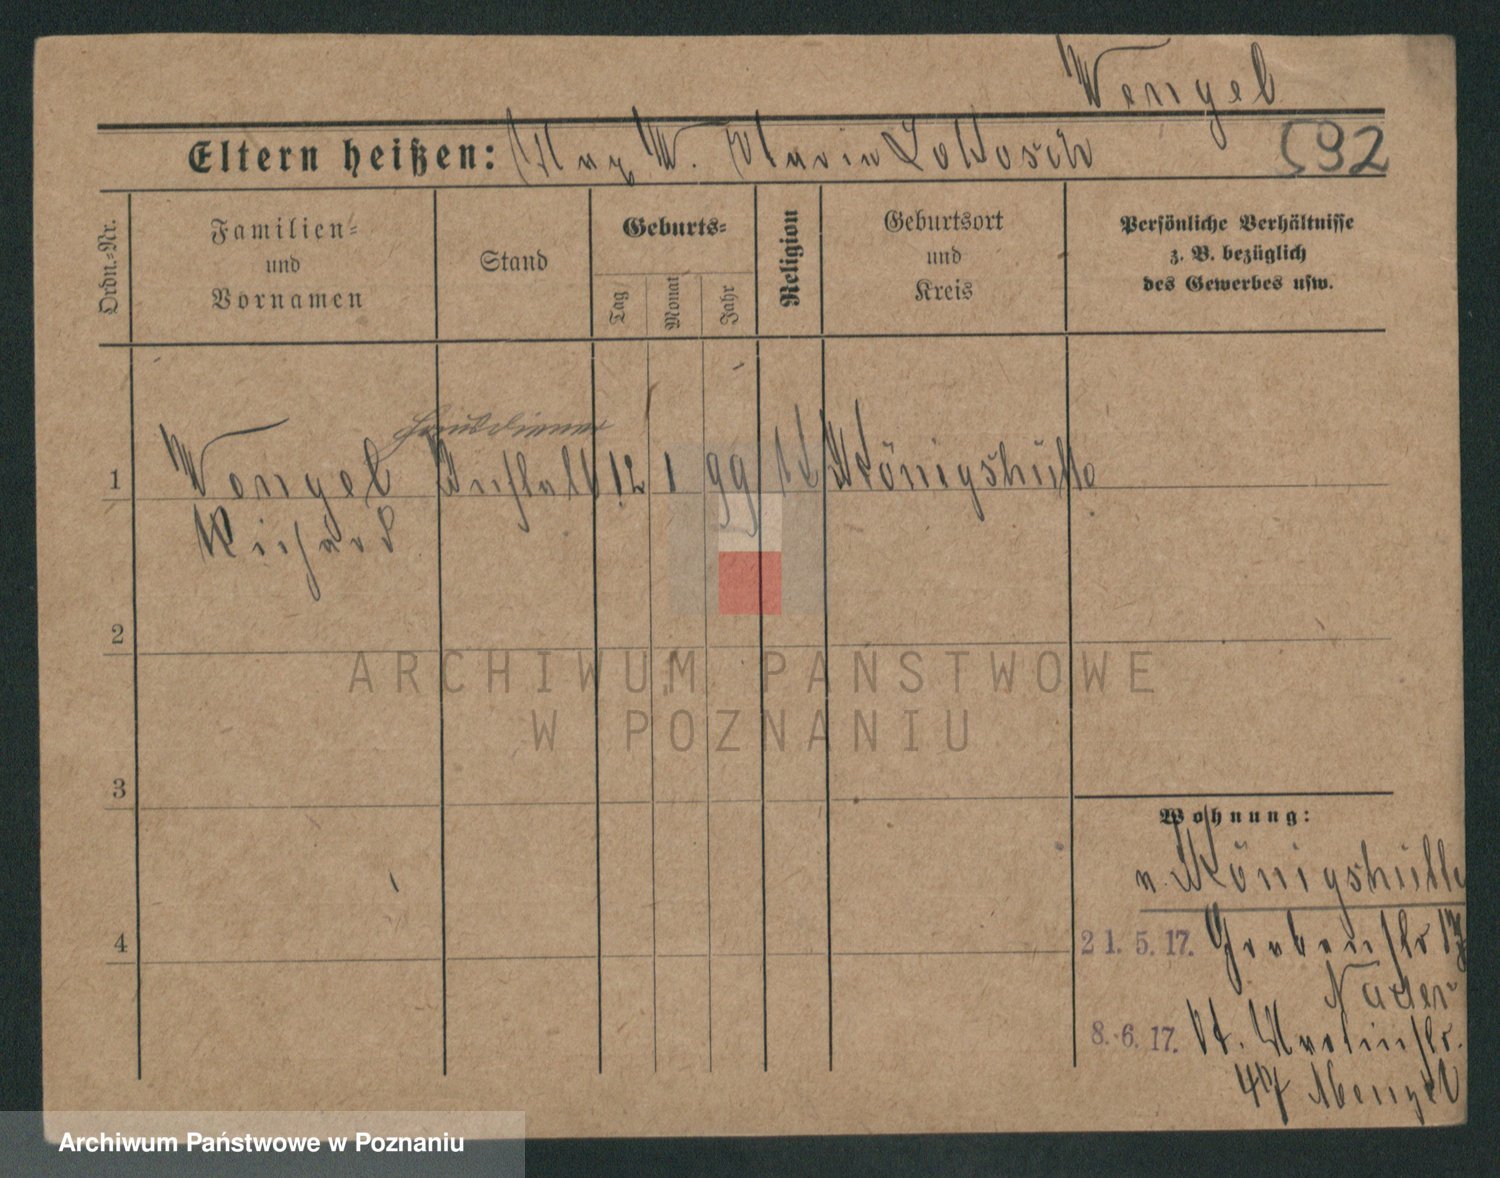 Wengel
592
Eltern heißen: Max W. Maria
Ordn.-Nr.
Familien-
und
Vornamen
Stand
Geburts-
Tag
Monat
Jahr
Religion
Geburtsort
und
Kreis
Persönliche Verhältnisse
z. B. bezüglich
des Gewerbes usw.
Hausdiener
1 Wengel 12 1 99 Königshütte
Richard
2
3
4
Wohnung:
v. Königshütte
21. 5. 17. Grabenstr 17
8. 6. 17. St. Martinstr.
47
ARCHIWUM PAŃSTWOWE
W POZNANIU
Archiwum Państwowe w Poznaniu